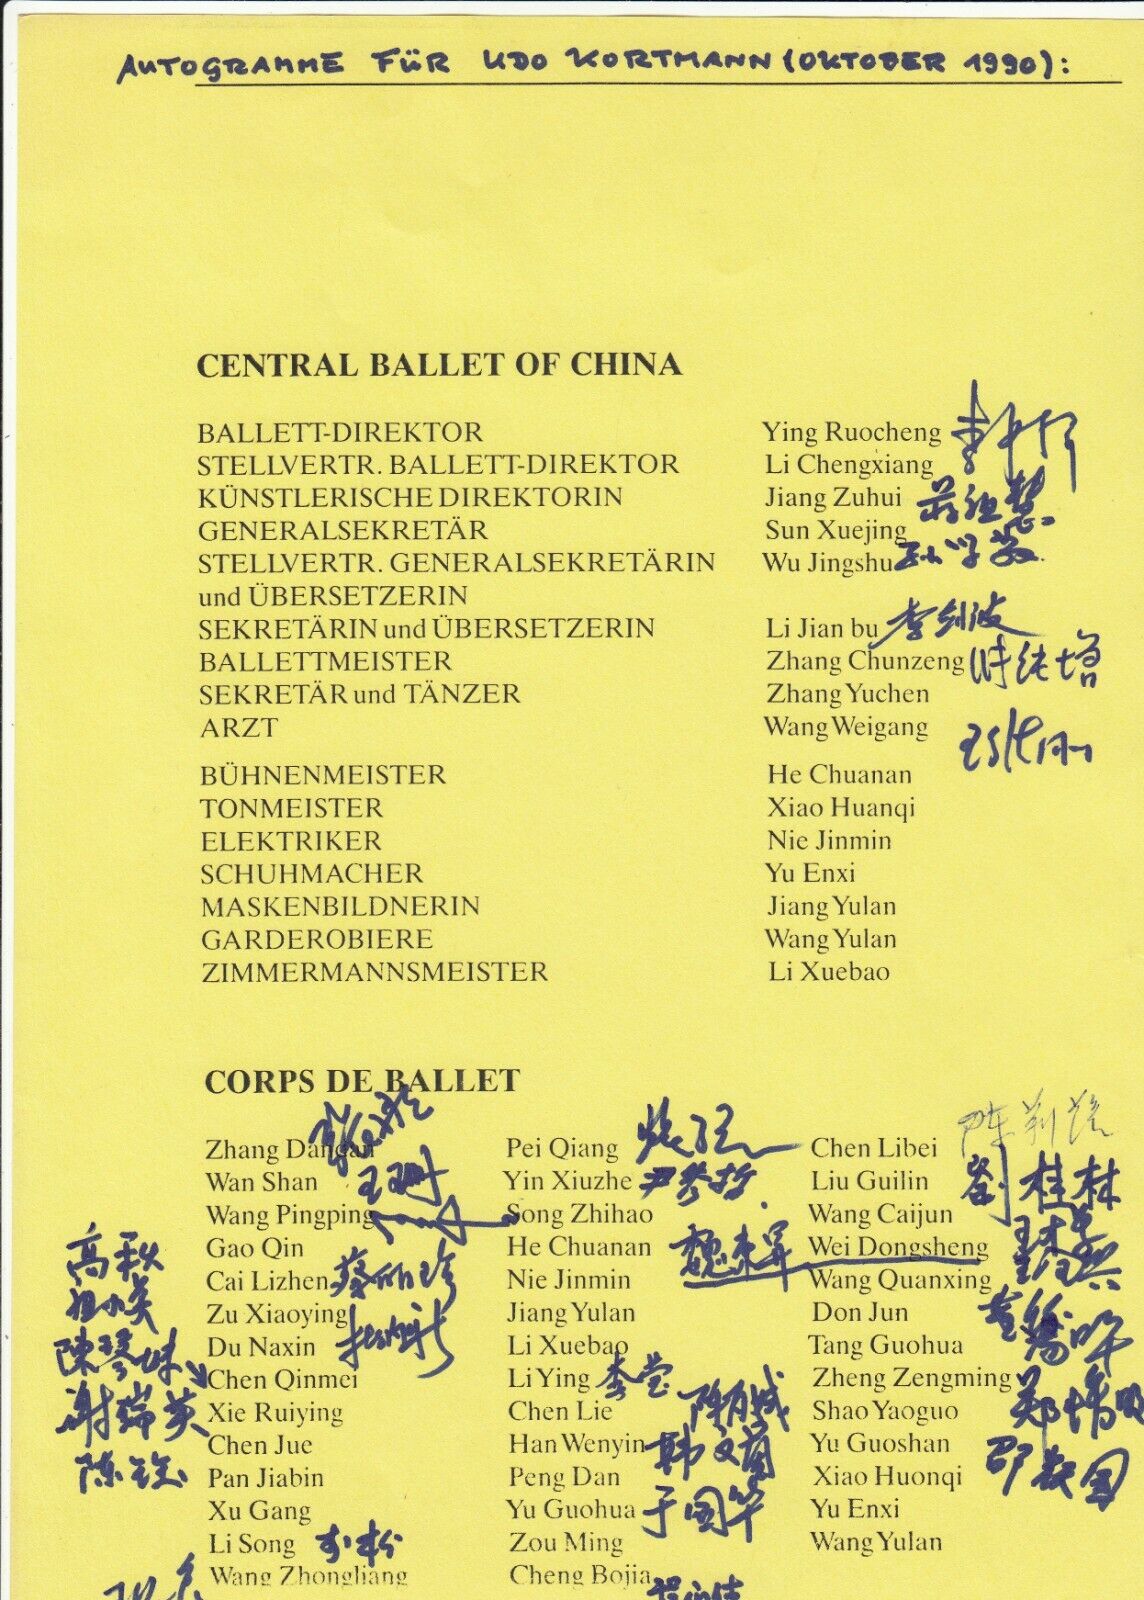 AUTOGRAMME FÜR UDO KORTMANN (OKTOBER 1990):
CENTRAL BALLET OF CHINA
BALLETT-DIREKTOR Ying Ruocheng
STELLVERTR. BALLETT-DIREKTOR Li Chengxiang
KÜNSTLERISCHE DIREKTORIN Jiang Zuhui 蒋祖慧
GENERALSEKRETÄR Sun Xuejing
STELLVERTR. GENERALSEKRETÄRIN Wu Jingshu 孙学敬
und ÜBERSETZERIN
SEKRETÄRIN und ÜBERSETZERIN Li Jian bu 李剑波
BALLETTMEISTER Zhang Chunzeng 张纯增
SEKRETÄR und TÄNZER Zhang Yuchen
ARZT Wang Weigang 王伟刚
BÜHNENMEISTER He Chuanan
TONMEISTER Xiao Huanqi
ELEKTRIKER Nie Jinmin
SCHUHMACHER Yu Enxi
MASKENBILDNERIN Jiang Yulan
GARDEROBIERE Wang Yulan
ZIMMERMANNSMEISTER Li Xuebao
CORPS DE BALLET
Zhang Dandan Pei Qiang Chen Libei
Wan Shan 王珊 Yin Xiuzhe Liu Guilin 刘桂林
Wang Pingping Song Zhihao Wang Caijun
高秋 Gao Qin He Chuanan 魏东昇 Wei Dongsheng
祖小英 Cai Lizhen 蔡丽珍 Nie Jinmin Wang Quanxing 王全兴
Zu Xiaoying Jiang Yulan Don Jun
陳琴妹 Du Naxin 杜纳新 Li Xuebao Tang Guohua
Chen Qinmei Li Ying 李莹 Zheng Zengming
謝瑞英 Xie Ruiying Chen Lie Shao Yaoguo
陈珏 Chen Jue Han Wenyin Yu Guoshan
Pan Jiabin Peng Dan Xiao Huonqi
Xu Gang Yu Guohua 于国华 Yu Enxi
Li Song 李松 Zou Ming Wang Yulan
Wang Zhongliang Cheng Bojia